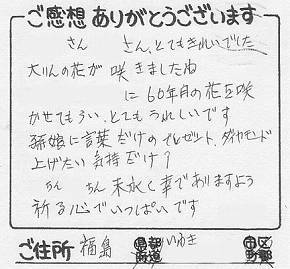 ご感想ありがとうございます
さん さん、とてもきれいでした
大りんの花が 咲きましたね
に 60年目の花を咲
かせてもらい、とてもうれしいです
孫娘に言葉だけのプレゼント、ダイヤモンド
上げたい気持だけ?
ちゃん ちゃん 末永く幸でありますよう
祈る心でいっぱいです
ご住所 福島 都道府県 いわき 市区町郡